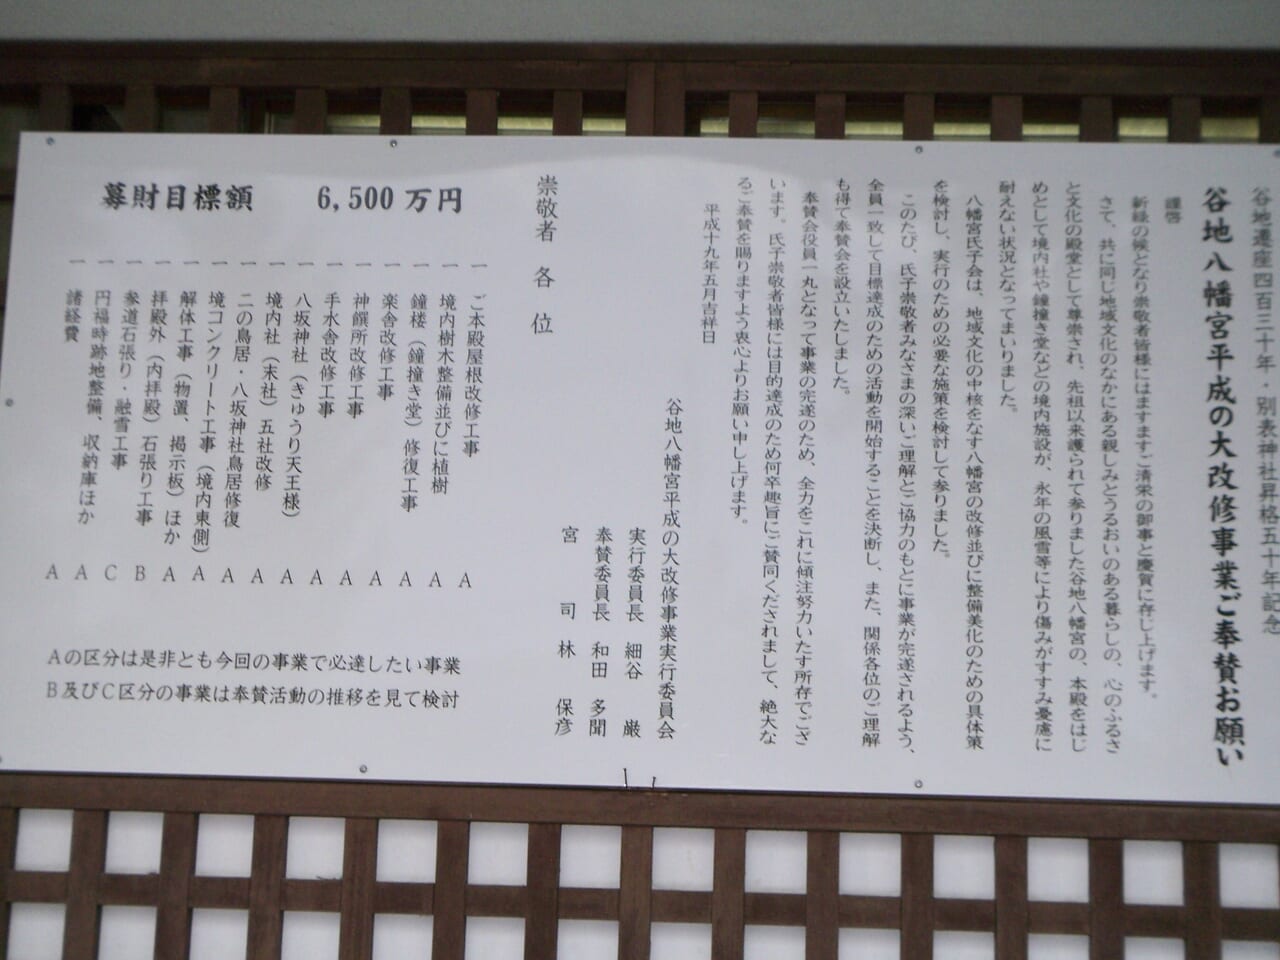 谷地遷座四百三十年・別表神社昇格五十年記念
谷地八幡宮平成の大改修事業ご奉賛お願い
謹啓
新緑の候となり崇敬者皆様にはますますご清栄の御事と慶賀に存じ上げます。
さて、共に同じ地域文化のなかにある親しみとうるおいのある暮らしの、心のふるさ
と文化の殿堂として尊崇され、先祖以来護られて参りました谷地八幡宮の、本殿をはじ
めとして境内社や鐘撞き堂などの境内施設が、永年の風雪等により傷みがすすみ憂慮に
耐えない状況となってまいりました。
八幡宮氏子会は、地域文化の中核をなす八幡宮の改修並びに整備美化のための具体策
を検討し、実行のための必要な施策を検討して参りました。
このたび、氏子崇敬者みなさまの深いご理解とご協力のもとに事業が完遂されるよう、
全員一致して目標達成のための活動を開始することを決断し、また、関係各位のご理解
も得て奉賛会を設立いたしました。
奉賛会役員一丸となって事業の完遂のため、全力をこれに傾注努力いたす所存でござ
います。氏子崇敬者皆様には目的達成のため何卒趣旨にご賛同くだされまして、絶大な
るご奉賛を賜りますよう衷心よりお願い申し上げます。
平成十九年五月吉祥日
谷地八幡宮平成の大改修事業実行委員会
実行委員長 細谷 巌
奉賛委員長 和田 多聞
宮 司 林 保彦
崇敬者 各 位
募財目標額 6,500万円
一 ご本殿屋根改修工事 A
一 境内樹木整備並びに植樹 A
一 鐘楼（鐘撞き堂）修復工事 A
一 楽舎改修工事 A
一 神饌所改修工事 A
一 手水舎改修工事 A
一 八坂神社（きゅうり天王様） A
一 境内社（末社）五社改修 A
一 二の鳥居・八坂神社鳥居修復 A
一 境コンクリート工事（境内東側） A
一 解体工事（物置、掲示板）ほか A
一 拝殿外（内拝殿）石張り工事 B
一 参道石張り・融雪工事 C
一 円福時跡地整備、収納庫ほか A
一 諸経費 A
Aの区分は是非とも今回の事業で必達したい事業
B及びC区分の事業は奉賛活動の推移を見て検討